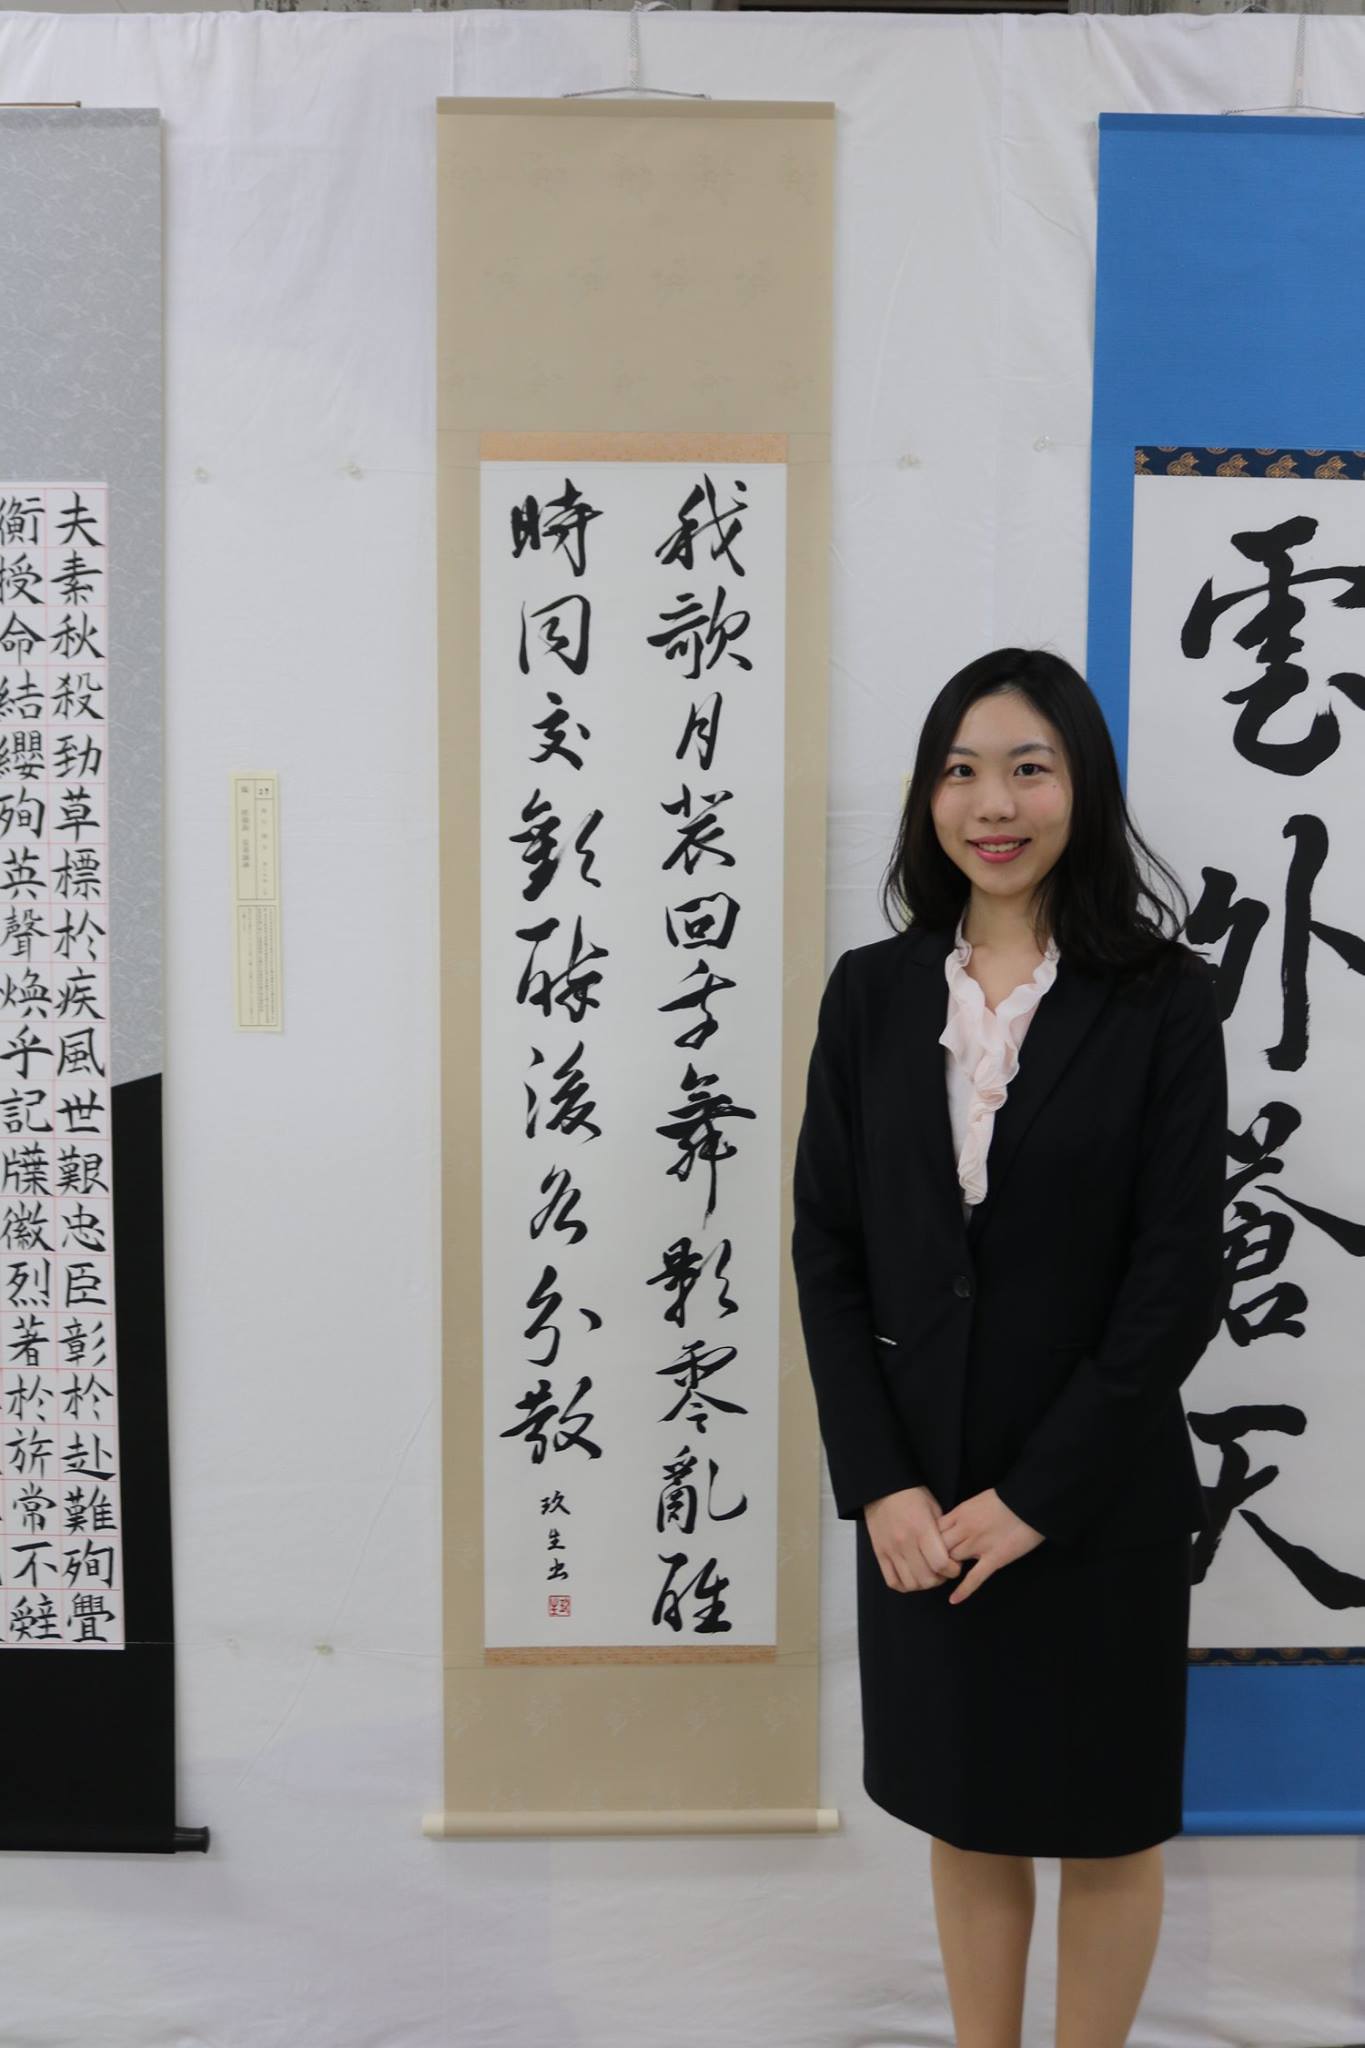 雲外蒼天
我歌月裴回我舞影零亂醒
時同交歡醉後各分散
玖生書
夫素秋殺勁草標於疾風世艱忠臣彰於赴難殉
衡授命結纓殉英聲煥乎記牒徽烈著於旂常不